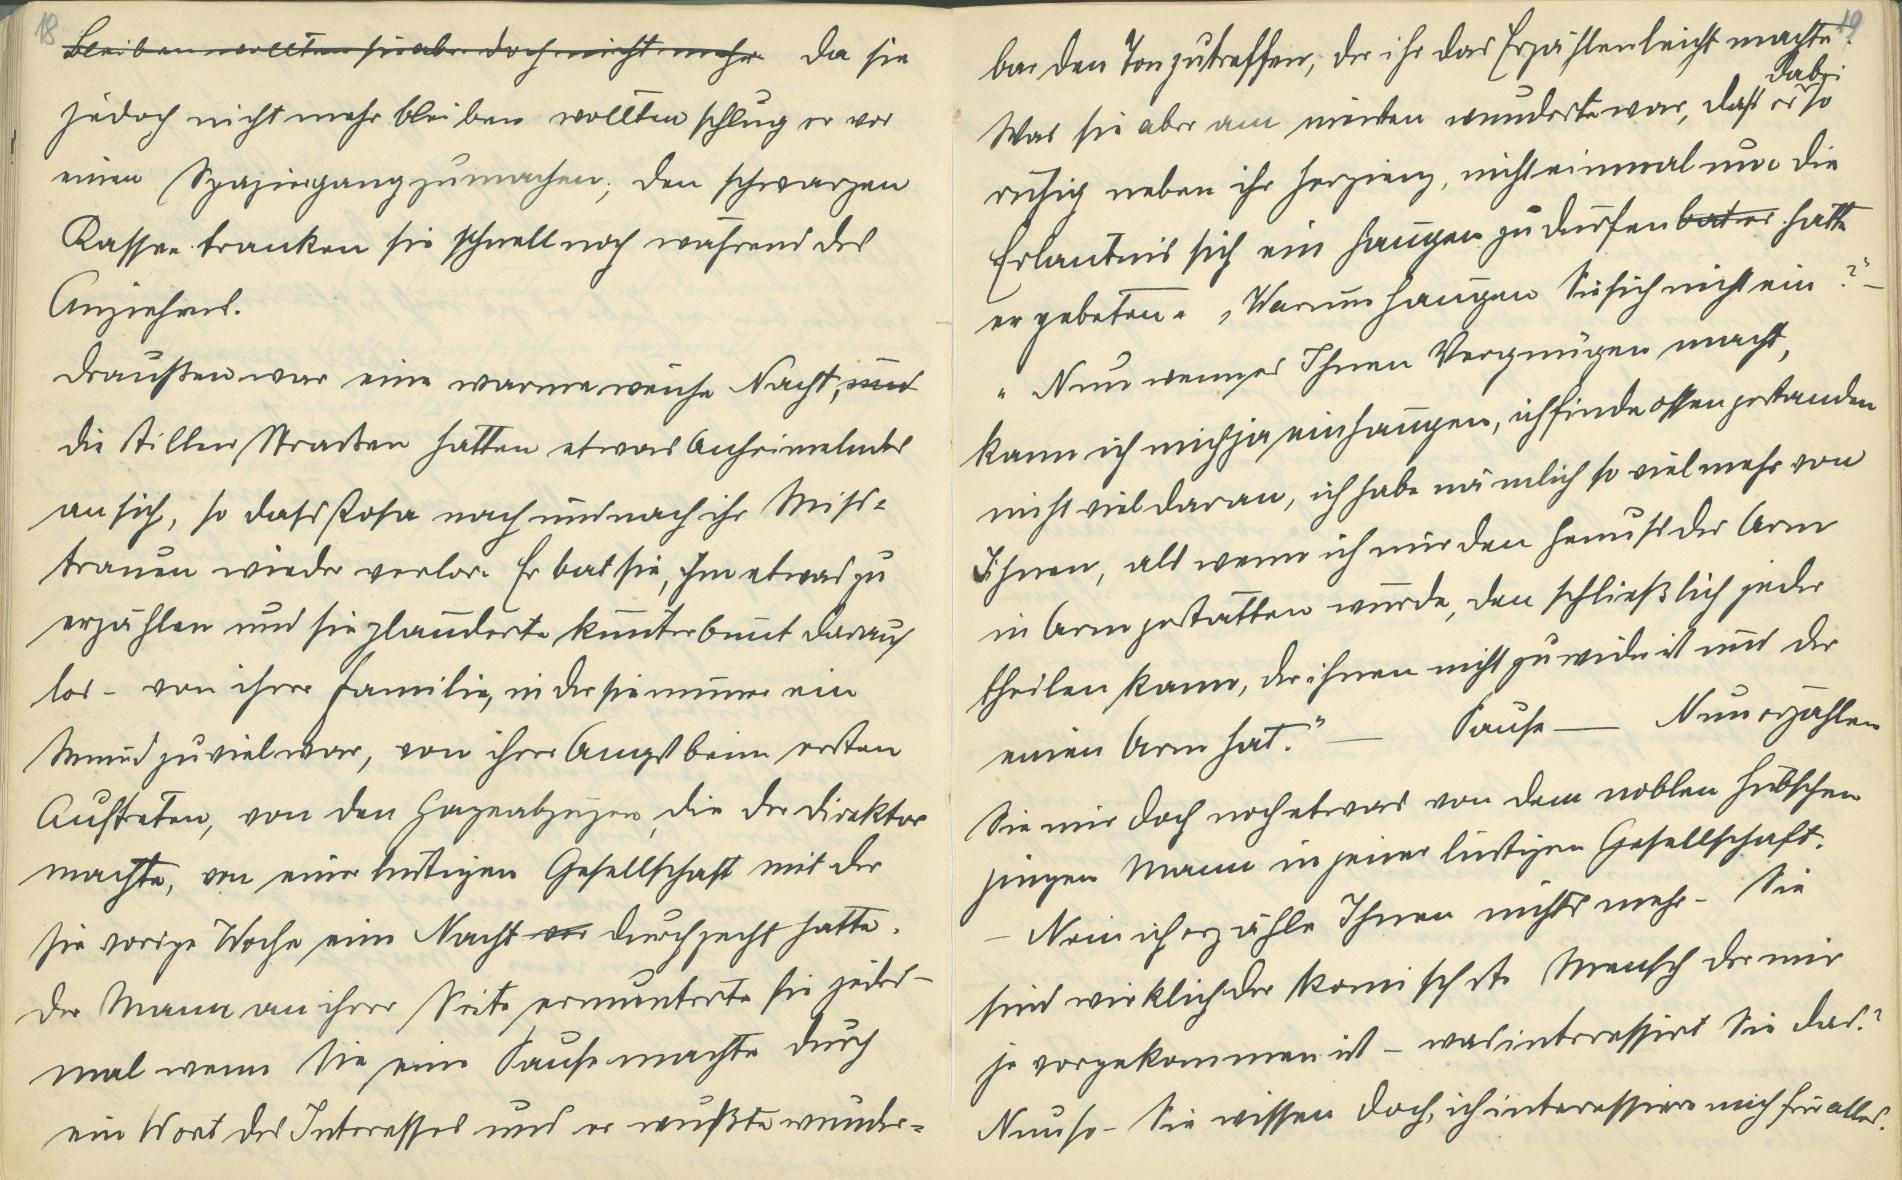 18
Bleiben wollten sie aber doch nicht mehr da sie
jedoch nicht mehr bleiben wollten schlug er vor
einen Spaziergang zu machen; den schwarzen
Kaffee tranken sie schnell noch während des
Anziehens.
Draußen war eine warme weiche Nacht, und
die stillen Straßen hatten etwas Anheimelndes
an sich, so dass Rosa nach und nach ihr Miss-
trauen wieder verlor. Er bat sie, ihm etwas zu
erzählen und sie plauderte kunterbunt darauf
los - von ihrer Familie, in der sie immer ein
Mund zu viel war, von ihrer Angst beim ersten
Auftreten, von den Gageabzügen, die der Direktor
machte, von einer lustigen Gesellschaft mit der
sie vorige Woche eine Nacht vor durchzecht hatte.
Der Mann an ihrer Seite ermunterte sie jedes-
mal wenn Sie eine Pause machte durch
ein Wort des Interesses und er wußte wunder-
19
bar den Ton zu treffen, der ihr das Erzählen leicht machte.
dabei
Was sie aber am meisten wunderte war, daß er so
ruhig neben ihr herging, nicht einmal um die
Erlaubnis sich ein hängen zu dürfen bat er hatte
er gebeten. „Warum hängen Sie sich nicht ein?" -
„Nun wenn es Ihnen Vergnügen macht,
kann ich mich ja einhängen, ich finde offen gestanden
nicht viel daran, ich habe nämlich so viel mehr von
Ihnen, als wenn ich mir den Genuß der Arm
in Arm gestatten würde, den schließlich jeder
theilen kann, der ihnen nicht zuwider ist und der
einen Arm hat." — Pause — Nun erzählen
Sie mir doch noch etwas von dem noblen hübschen
jungen Mann in jener lustigen Gesellschaft.
- Nein ich erzähle Ihnen nichts mehr - Sie
sind wirklich der komischste Mensch der mir
je vorgekommen ist - was interessiert Sie das?
Nun so - Sie wissen doch, ich interessiere mich für alles.